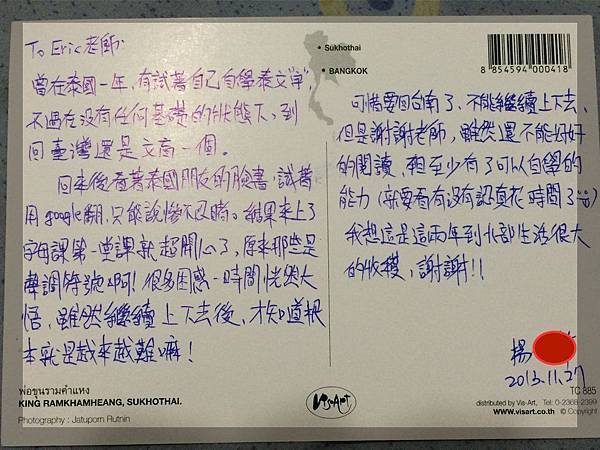 To Eric老師:
曾在泰國一年,有試著自己自學泰文字,
不過在沒有任何基礎的狀態下,到
回臺灣還是文盲一個。
回來後看著泰國朋友的臉書,試著
用google翻,只能說慘不忍睹。結果來上了
字母課第一堂課就超開心了,原來那些是
聲調符號啊!很多困惑一時間恍然大
悟,雖然繼續上下去後,才知道根
本就是越來越難嘛!
พ่อขุนรามคำแหง
KING RAMKHAMHEANG, SUKHOTHAI.
Photography : Jatuporn Rutnin
Sukhothai
BANGKOK
8 854594 000418
可惜要回台南了,不能繼續上下去,
但是謝謝老師,雖然還不能好好
的閱讀,但至少有了可以自學的
能力(就要看有沒有認真花時間了
我想這是這兩年到北部生活很大
的收穫,謝謝!!
楊
2013.11.27
Vis-Art
TC 885
distributed by Vis-Art, Tel: 0-2368-2399
www.visart.co.th © Copyright